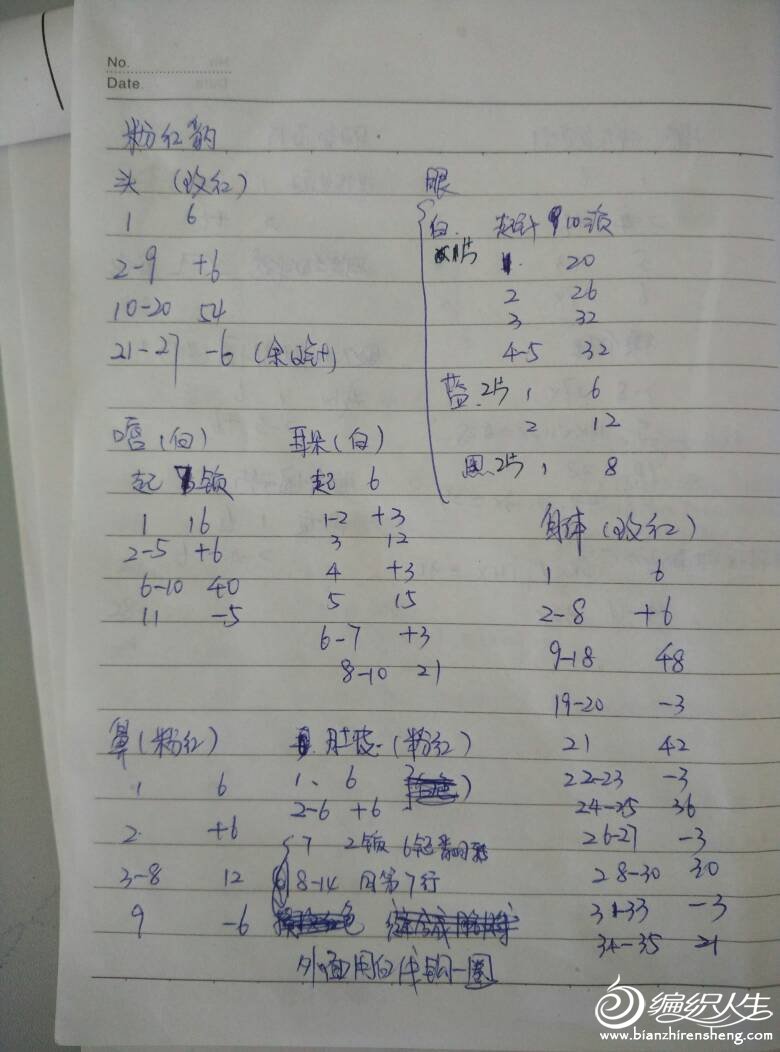 No.
Date.
粉红豹
头 (玫红)
1 6
2-9 +6
10-20 54
21-27 -6
眼
白. 起针 10锁
1. 20
2 26
3 32
4-5 32
蓝.2片 1 6
2 12
黑.2片 1 8
嘴 (白)
起 锁
1 16
2-5 +6
6-10 40
11 -5
耳朵 (白)
起 6
1-2 +3
3 12
4 +3
5 15
6-7 +3
8-10 21
身体 (玫红)
1 6
2-8 +6
9-18 48
19-20 -3
21 42
22-23 -3
24-25 36
26-27 -3
28-30 30
31-33 -3
34-35 21
鼻 (粉红)
1 6
2. +6
3-8 12
9 -6
肚皮 (粉红)
1、 6
2-6 +6
7 2锁 6短 翻
8-14 同第7行
外面用白线钩一圈
编织人生
www.bianzhirensheng.com